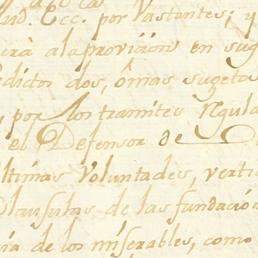 Ind. Ecc. por vastantes; y
erà ala provicion en sug
dictos dos, ô mas sugetos
y por los tramites regula
el Defensor de
ltimas Voluntades, verti
Clausulas de las fundacio
ia de los miserables, como